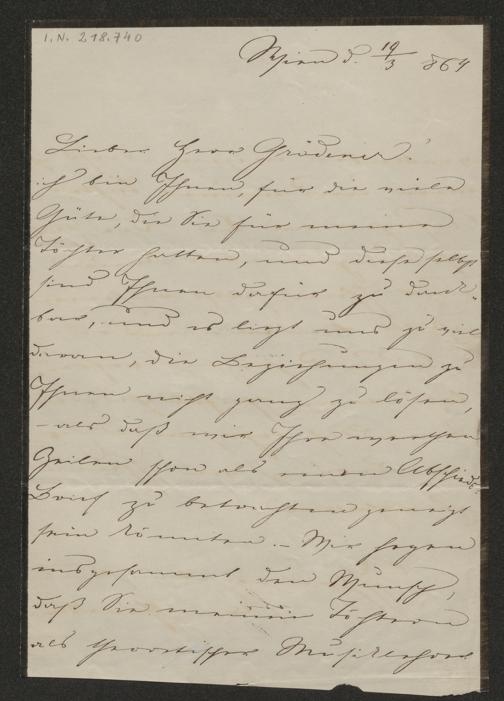 I.N. 218.740
Wien d. 19/3 864
Lieber Herr Grädener!
ich bin Ihnen, für die viele
Güte, die Sie für meine
Töchter hatten, und diese selbst
sind Ihnen dafür zu dank-
bar, und es liegt uns zu viel
daran, die Beziehungen zu
Ihnen nicht ganz zu lösen,
- als daß wir Ihre werthen
Zeilen schon als einen Abschieds
Brief zu betrachten geneigt
sein könnten. - Wir hegen
insgesammt den Wunsch,
daß Sie meinen Töchtern
als theoretischer Musiklehrer